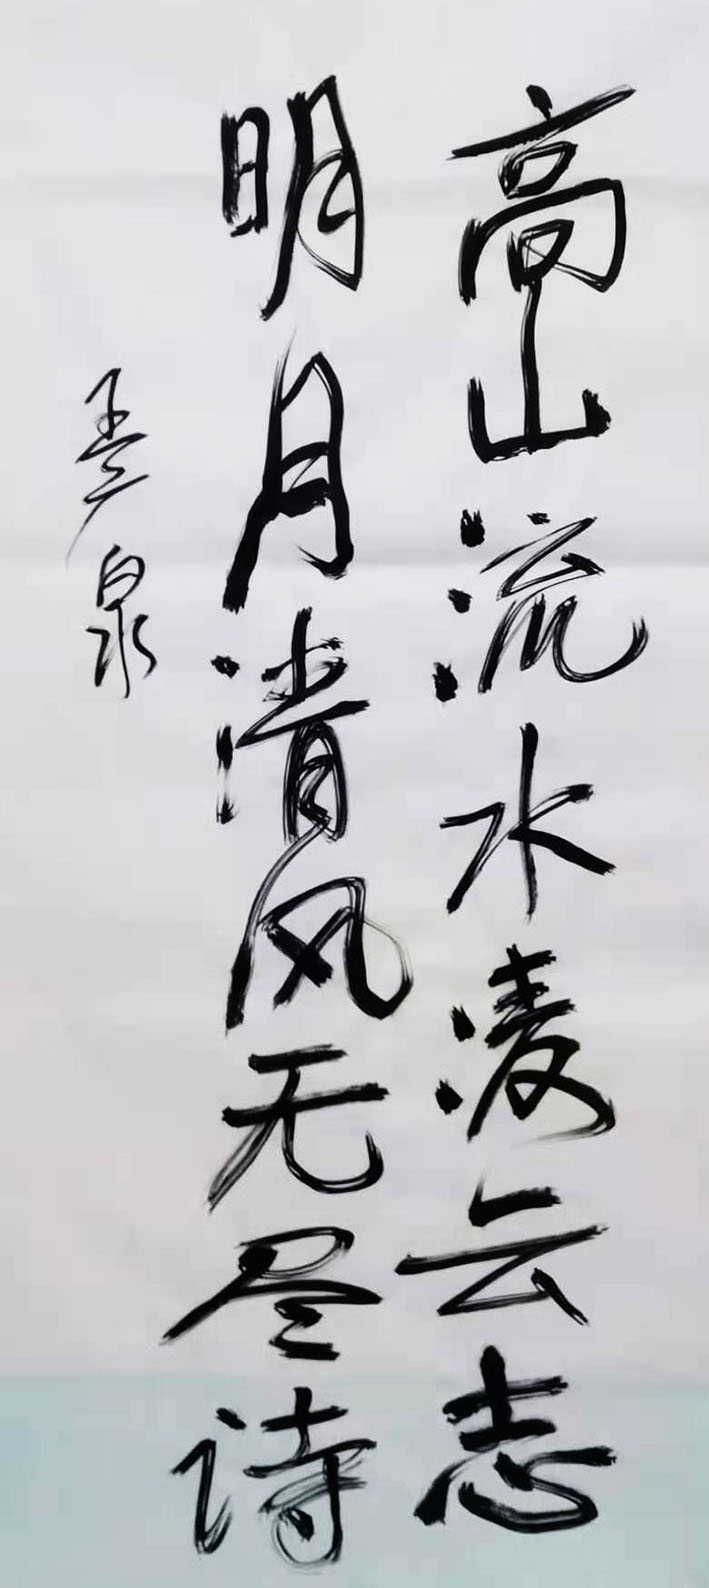 高山流水凌云志
明月清风无尽诗
泉